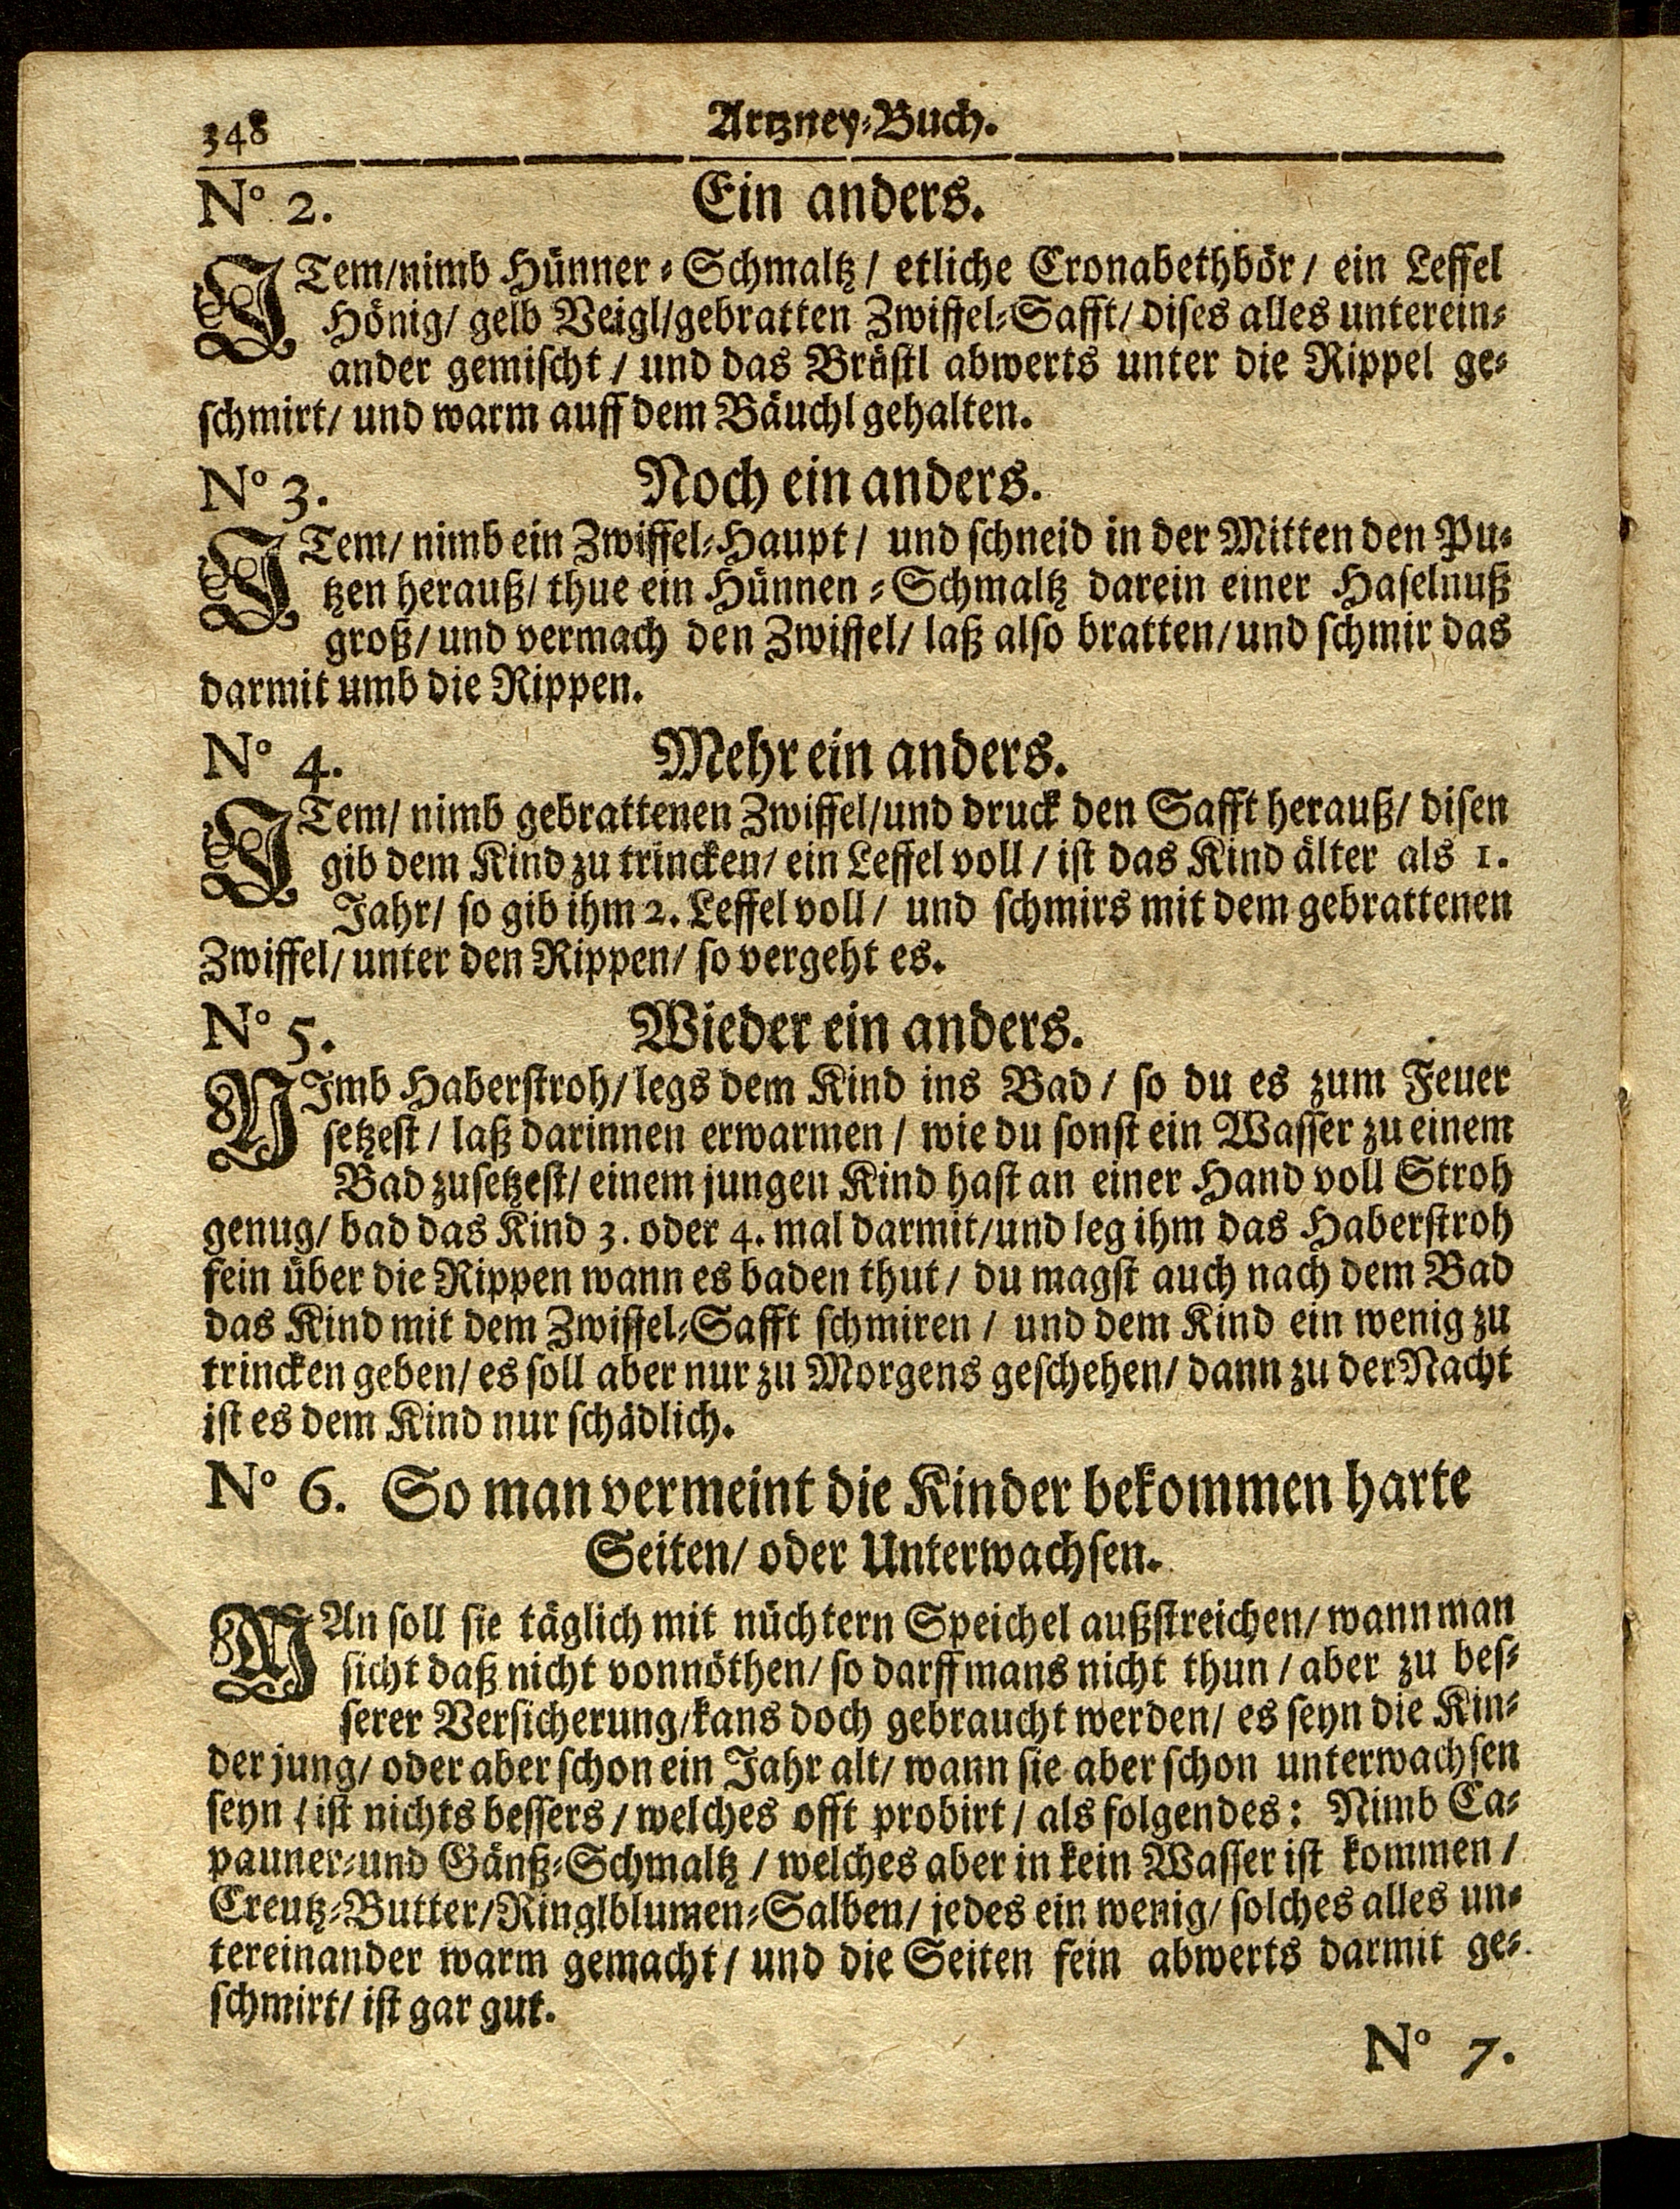 348 Artzney-Buch.
No 2. Ein anders.
ITem/nimb Hünner-Schmaltz/ etliche Cronabethbör/ ein Leffel
Hönig/ gelb Veigl/gebratten Zwiffel-Safft/ dises alles unterein-
ander gemischt/ und das Brüstl abwerts unter die Rippel ge-
schmirt/ und warm auff dem Bäuchl gehalten.
No 3. Noch ein anders.
ITem/ nimb ein Zwiffel-Haupt/ und schneid in der Mitten den Pu-
tzen herauß/ thue ein Hünnen-Schmaltz darein einer Haselnuß
groß/ und vermach den Zwiffel/ laß also bratten/ und schmir das
darmit umb die Rippen.
No 4. Mehr ein anders.
ITem/ nimb gebrattenen Zwiffel/und druck den Safft herauß/ disen
gib dem Kind zu trincken/ ein Leffel voll/ ist das Kind älter als 1.
Jahr/ so gib ihm 2. Leffel voll/ und schmirs mit dem gebrattenen
Zwiffel/ unter den Rippen/ so vergeht es.
No 5. Wieder ein anders.
NImb Haberstroh/ legs dem Kind ins Bad/ so du es zum Feuer
setzest/ laß darinnen erwarmen/ wie du sonst ein Wasser zu einem
Bad zusetzest/ einem jungen Kind hast an einer Hand voll Stroh
genug/ bad das Kind 3. oder 4. mal darmit/und leg ihm das Haberstroh
fein über die Rippen wann es baden thut/ du magst auch nach dem Bad
das Kind mit dem Zwiffel-Safft schmiren/ und dem Kind ein wenig zu
trincken geben/ es soll aber nur zu Morgens geschehen/ dann zu der Nacht
ist es dem Kind nur schädlich.
No 6. So man vermeint die Kinder bekommen harte
Seiten/ oder Unterwachsen.
MAn soll sie täglich mit nüchtern Speichel außstreichen/ wann man
sicht daß nicht vonnöthen/ so darff mans nicht thun/ aber zu bes-
serer Versicherung/kans doch gebraucht werden/ es seyn die Kin-
der jung/ oder aber schon ein Jahr alt/ wann sie aber schon unterwachsen
seyn/ ist nichts bessers/ welches offt probirt/ als folgendes: Nimb Ca-
pauner-und Gänß-Schmaltz/ welches aber in kein Wasser ist kommen/
Creutz-Butter/Ringlblumen-Salben/ jedes ein wenig/ solches alles un-
tereinander warm gemacht/ und die Seiten fein abwerts darmit ge-
schmirt/ ist gar gut.
No 7.